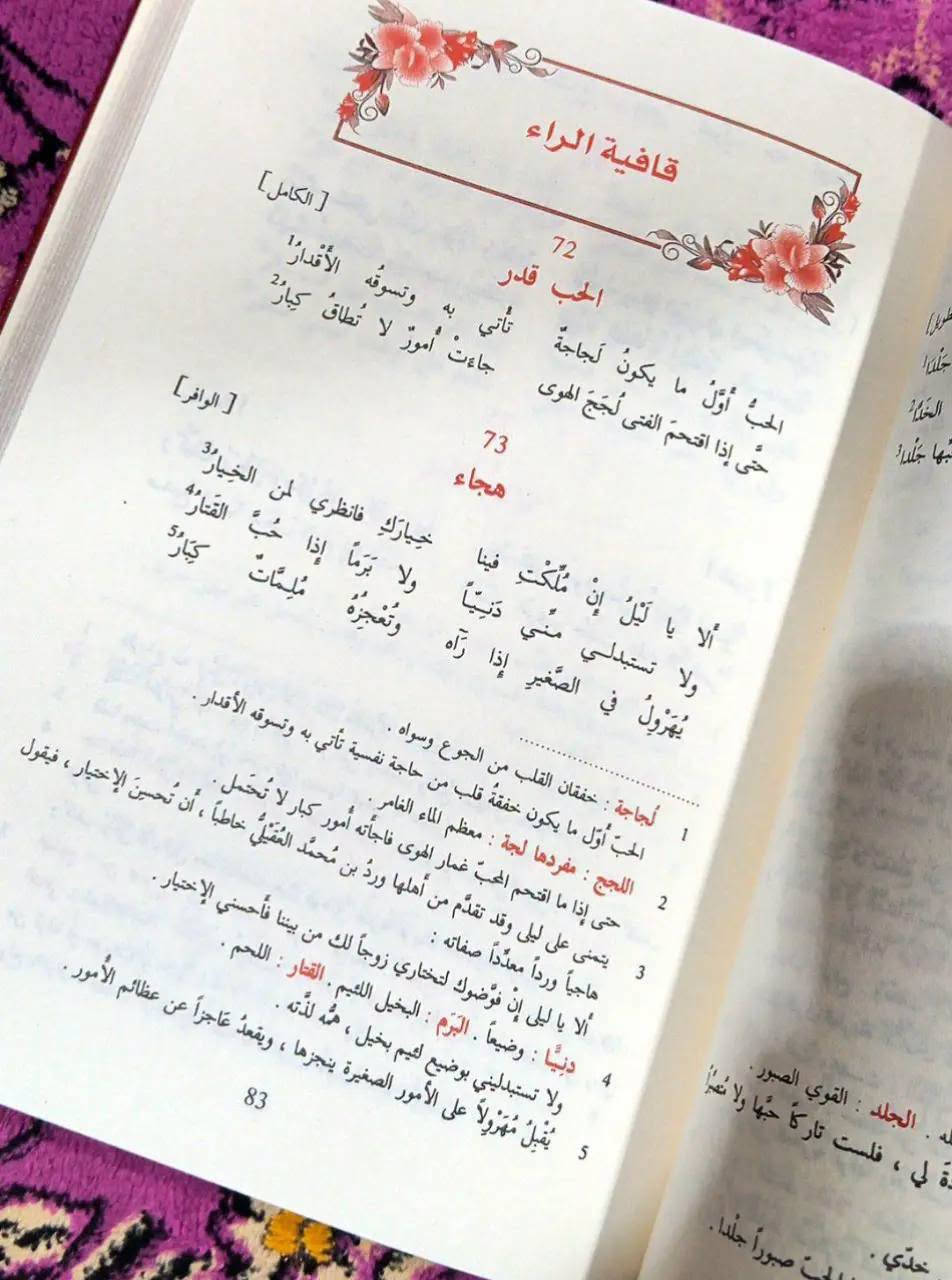 قافية الراء
72
الحب قدر
[ الكامل ]
الحبُّ أَوَّلُ ما يكونُ لَجاجةٌ تأتي به وتسوقُه الأَقْدارُ1
حتَّى إذا اقتحمَ الفتى لُجَجَ الهوى جاءَتْ أُمورٌ لا تُطاقُ كِبارُ2
73
هجاء
[ الوافر ]
ألا يا لَيْلُ إنْ مُلِّكْتِ فينا خِيارَكِ فانظري لمن الخِيارُ3
ولا تستبدلـي مـنِّـي دَنـيّـاً ولا بَرَماً إذا حُبَّ القَتارُ4
يُهَرْوِلُ في الصَّغيرِ إذا رَآه وتُعْجِزُهُ مُلِـمَّاتٌ كِبَارُ5
1 لَجاجة : خفقان القلب من الجوع وسواه .
الحبّ أوّل ما يكون خفقةُ قلب من حاجة نفسية تأتي به وتسوقه الأقدار .
2 اللجج : مفردها لجة : معظم الماء الغامر .
حتى إذا ما اقتحم المحبّ غمار الهوى فاجأته أمور كبار لا تُحتَمل .
3 يتمنى على ليلى وقد تقدَّم من أهلها وردُ بن مُحمَّد العُقَيْليُّ خاطباً ، أن تُحسِنَ الإختيار ، فيقول
هاجياً ورداً معدِّداً صفاته :
ألا يا ليلى إنْ فوَّضوك لتختاري زوجاً لك من بيننا فأحسني الإختيار .
4 دنيًّا : وضيعاً . البَرَم : البخيل اللئيم . القتار : اللحم .
ولا تستبدليني بوضيع لئيم بخيل ، همُّه لذَّته .
5 يُقْبِلُ مُهَرْوِلاً على الأمور الصغيرة ينجزها ، ويقعدُ عَاجزاً عن عظائم الأمور .
83
جَلْدا1
الخَدَّا2
جَلْدا3
الجلد : القوي الصبور .
لي ، فلست تاركاً حبَّها ولا
خدّي .
صبوراً جلْدا .